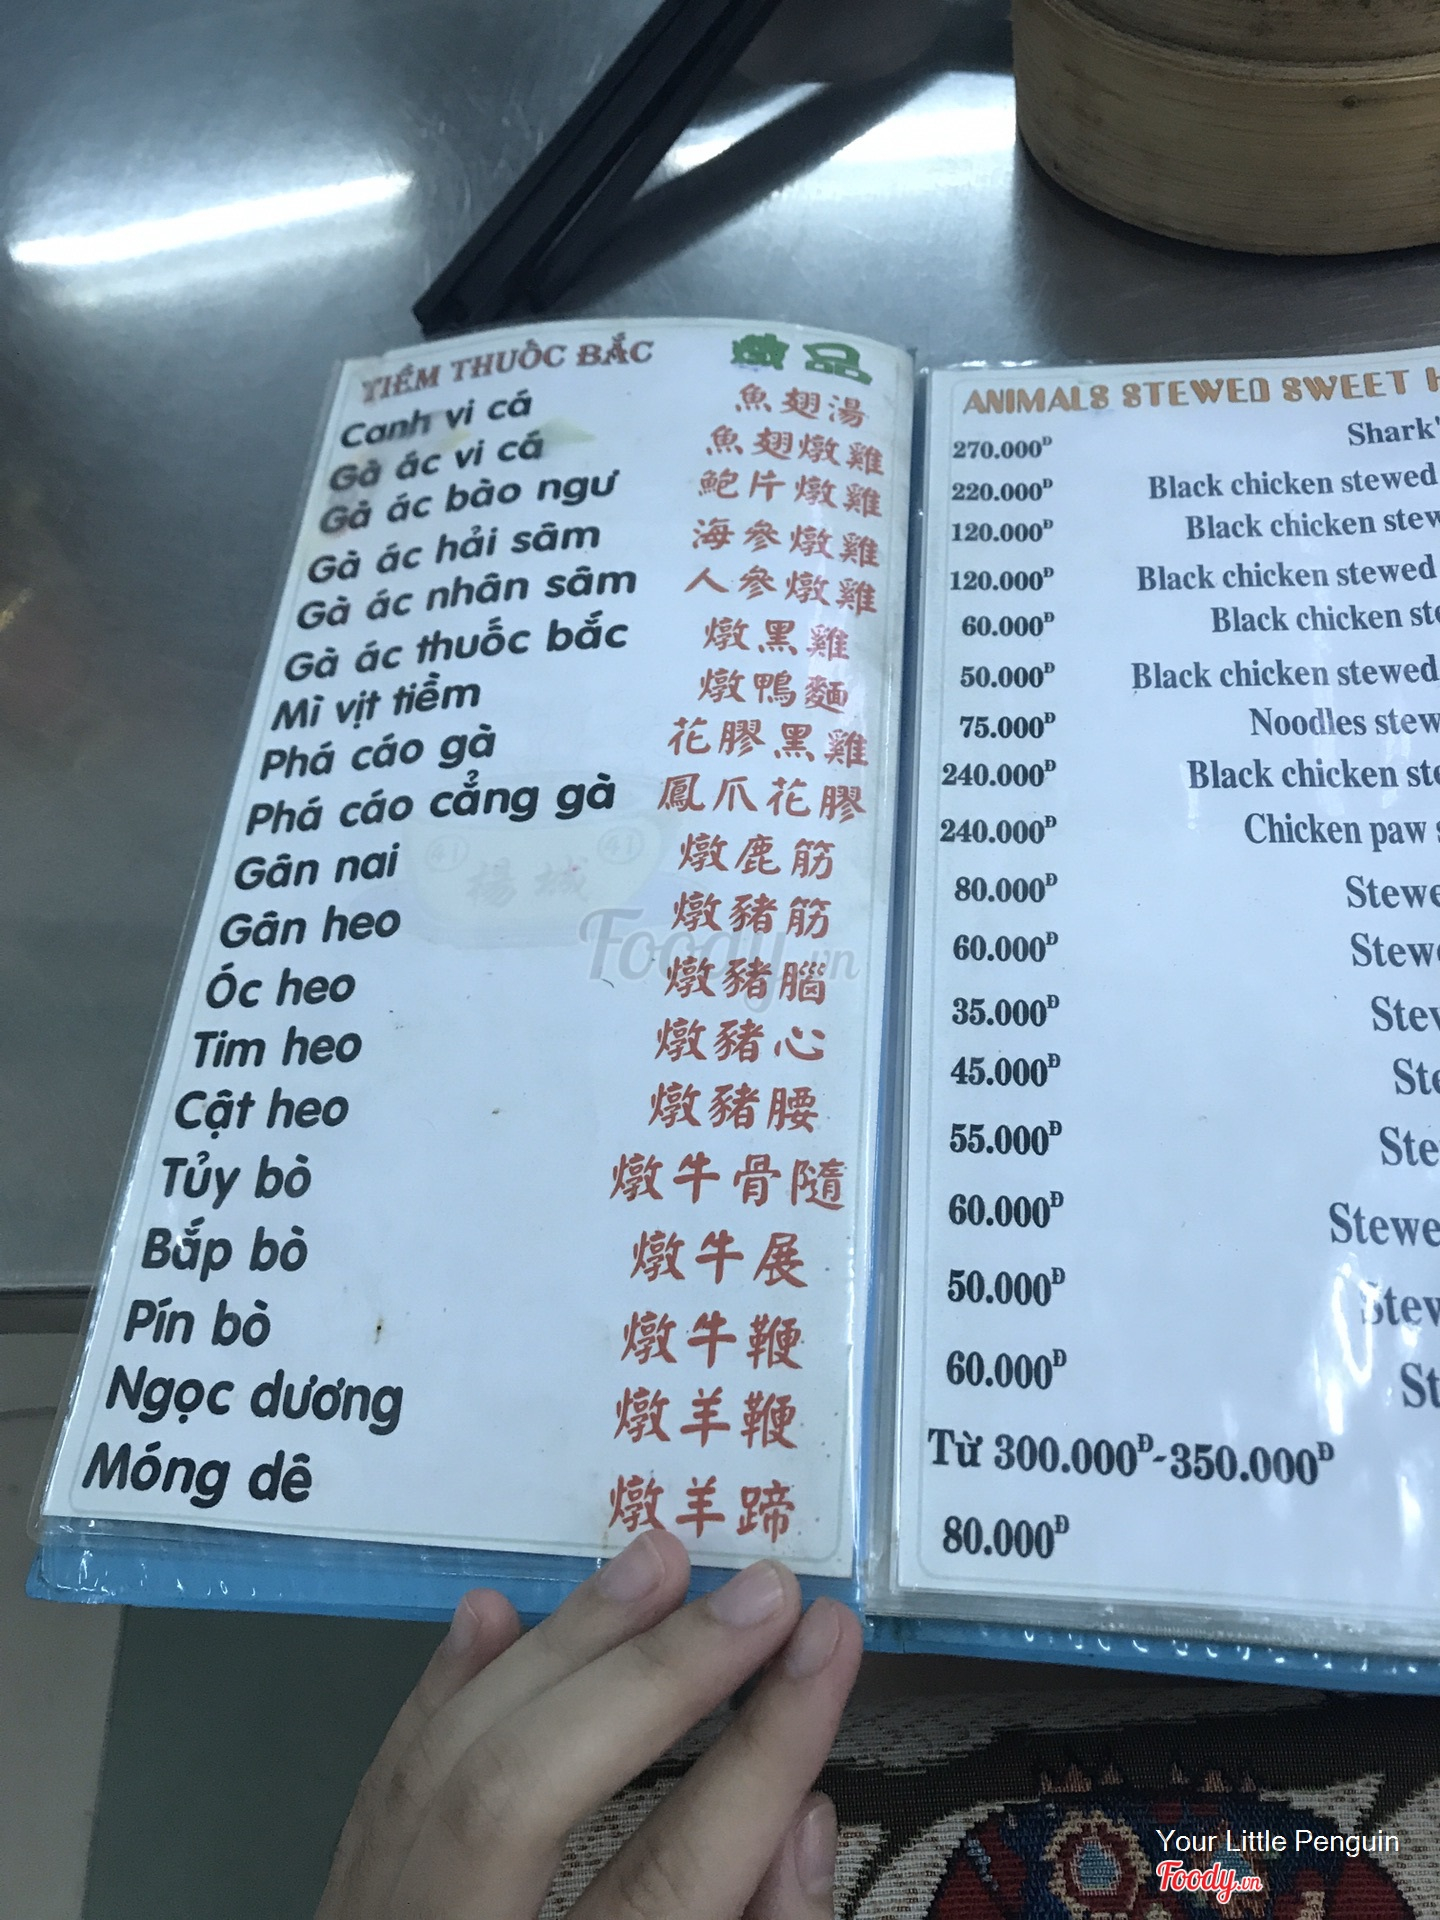 TIỀM THUỐC BẮC 燉品
Canh vi cá 魚翅湯
Gà ác vi cá 魚翅燉雞
Gà ác bào ngư 鮑片燉雞
Gà ác hải sâm 海參燉雞
Gà ác nhân sâm 人參燉雞
Gà ác thuốc bắc 燉黑雞
Mì vịt tiềm 燉鴨麵
Phá cáo gà 花膠黑雞
Phá cáo cẳng gà 鳳爪花膠
Gân nai 燉鹿筋
Gân heo 燉豬筋
Óc heo 燉豬腦
Tim heo 燉豬心
Cật heo 燉豬腰
Tủy bò 燉牛骨隨
Bắp bò 燉牛展
Pín bò 燉牛鞭
Ngọc dương 燉羊鞭
Móng dê 燉羊蹄
41 楊城 41
Foody.vn
ANIMALS STEWED SWEET
270.000Đ Shark'
220.000Đ Black chicken stewed
120.000Đ Black chicken stew
120.000Đ Black chicken stewed
60.000Đ Black chicken ste
50.000Đ Black chicken stewed
75.000Đ Noodles stew
240.000Đ Black chicken ste
240.000Đ Chicken paw s
80.000Đ Stewe
60.000Đ Stewe
35.000Đ Stew
45.000Đ Ste
55.000Đ Ste
60.000Đ Stewe
50.000Đ Stew
60.000Đ St
Từ 300.000Đ-350.000Đ
80.000Đ
Your Little Penguin
Foody.vn